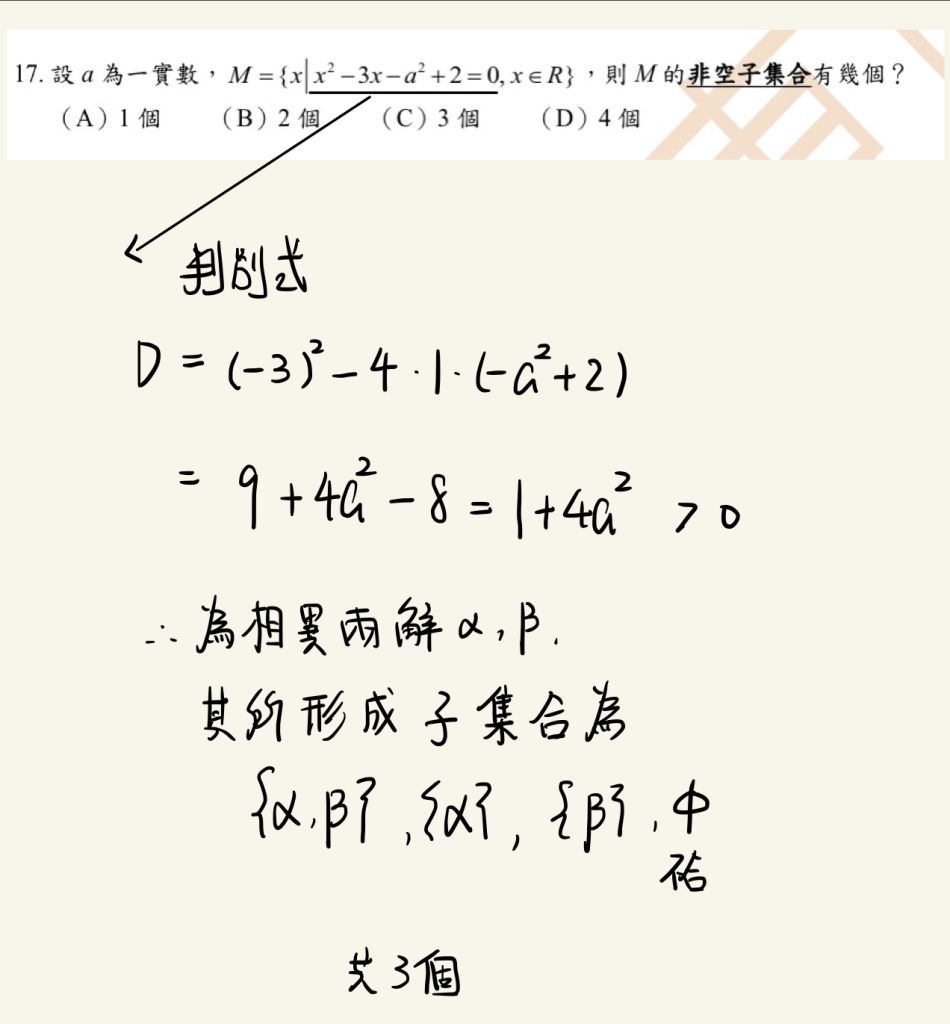 17. 設 a 為一實數，M={x|x²−3x−a²+2=0, x∈R}，則 M 的非空子集合有幾個？
（A）1 個 （B）2 個 （C）3 個 （D）4 個
判別式
D = (-3)² - 4·1·(-a²+2)
= 9 + 4a² - 8 = 1+4a² > 0
∴ 為相異兩解 α, β.
其所形成子集合為
{α, β}, {α}, {β}, ф
共3個